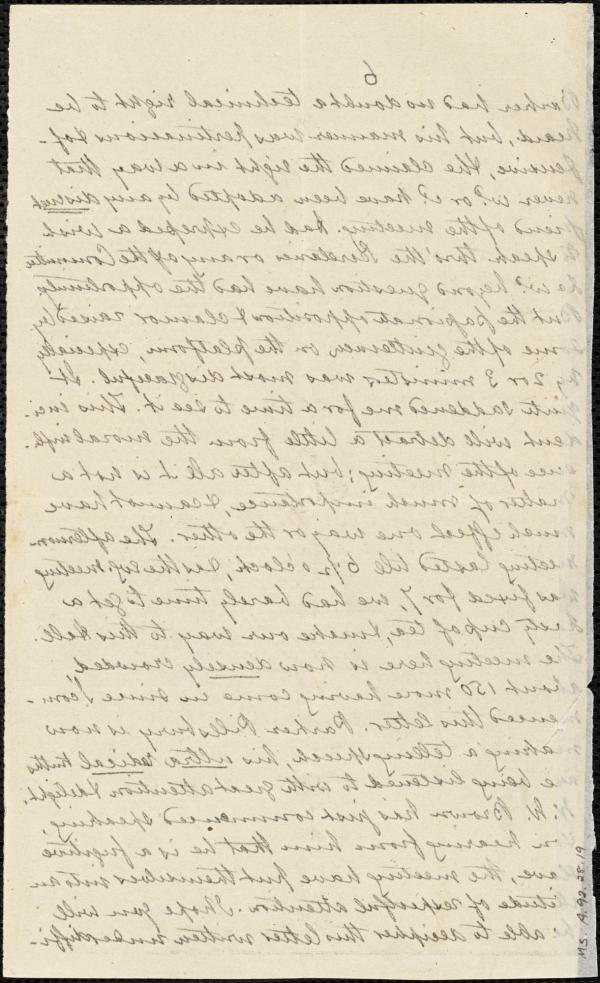 6
Parker had no doubt a technical right to be
heard, but his manner was pertinacious & of-
fensive, & he claimed the right in a way that
never wd. or cd. have been adopted by any distinct
friend of the meeting. Had he expressed a wish
to speak thro' the Reverend or any of the Committee
he wd. beyond question have had the opportunity.
But the passionate opposition & clamor raised by
some of the gentlemen on the platform, especially
by 2 or 3 ministers was most disgraceful. It
quite saddened me for a time to see it. This inci-
dent will detract a little from the moral infl-
ence of the meeting; but after all it is not a
matter of much importance, & cannot have
much effect one way or the other. The afternoon
meeting lasted till 6 1/2 o'clock, & as the evg. meeting
was fixed for 7, we had barely time to get a
hasty cup of tea, & make our way to this Hall.
The meeting here is now densely crowded
about 150 more having come in since I com-
menced this letter. Parker Pillsbury is now
making a telling speech, his ultra radical truths
are being listened to with great attention & delight.
W. Brown has just commenced speaking,
on hearing from him that he is a fugitive
slave, the meeting have put themselves into an
attitude of respectful attention. I hope you will
be able to decipher this letter written under diffi-
MS. A.9.2.28.19